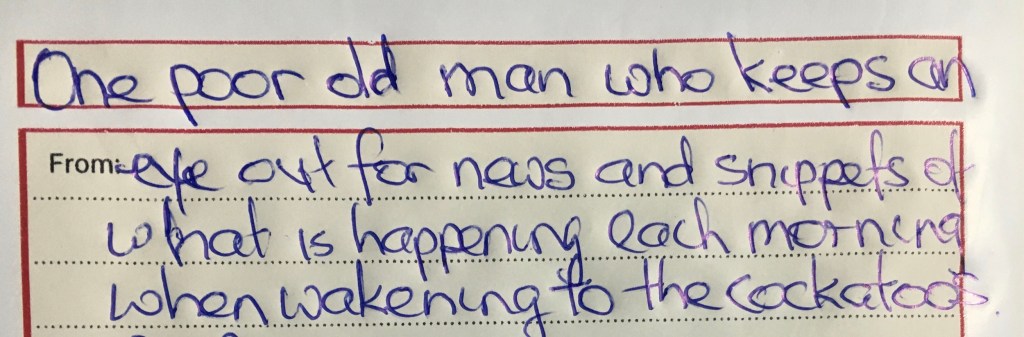 One poor old man who keeps an
From: eye out for news and snippets of
what is happening each morning
when wakening to the cockatoos.